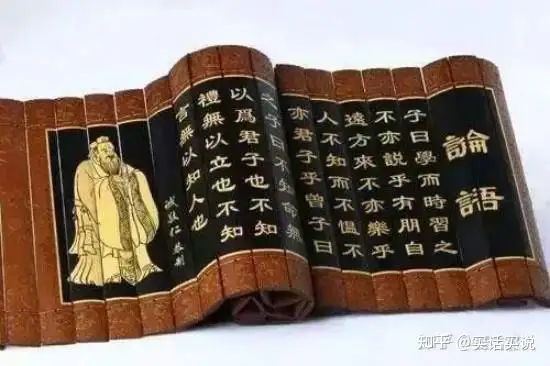 論語
子曰學而時習之
不亦說乎有朋自
遠方來不亦樂乎
人不知而不慍不
亦君子乎曾子曰
之子曰不知命無
以爲君子也不知
禮無以立也不知
言無以知人也
誠敬仁
知乎